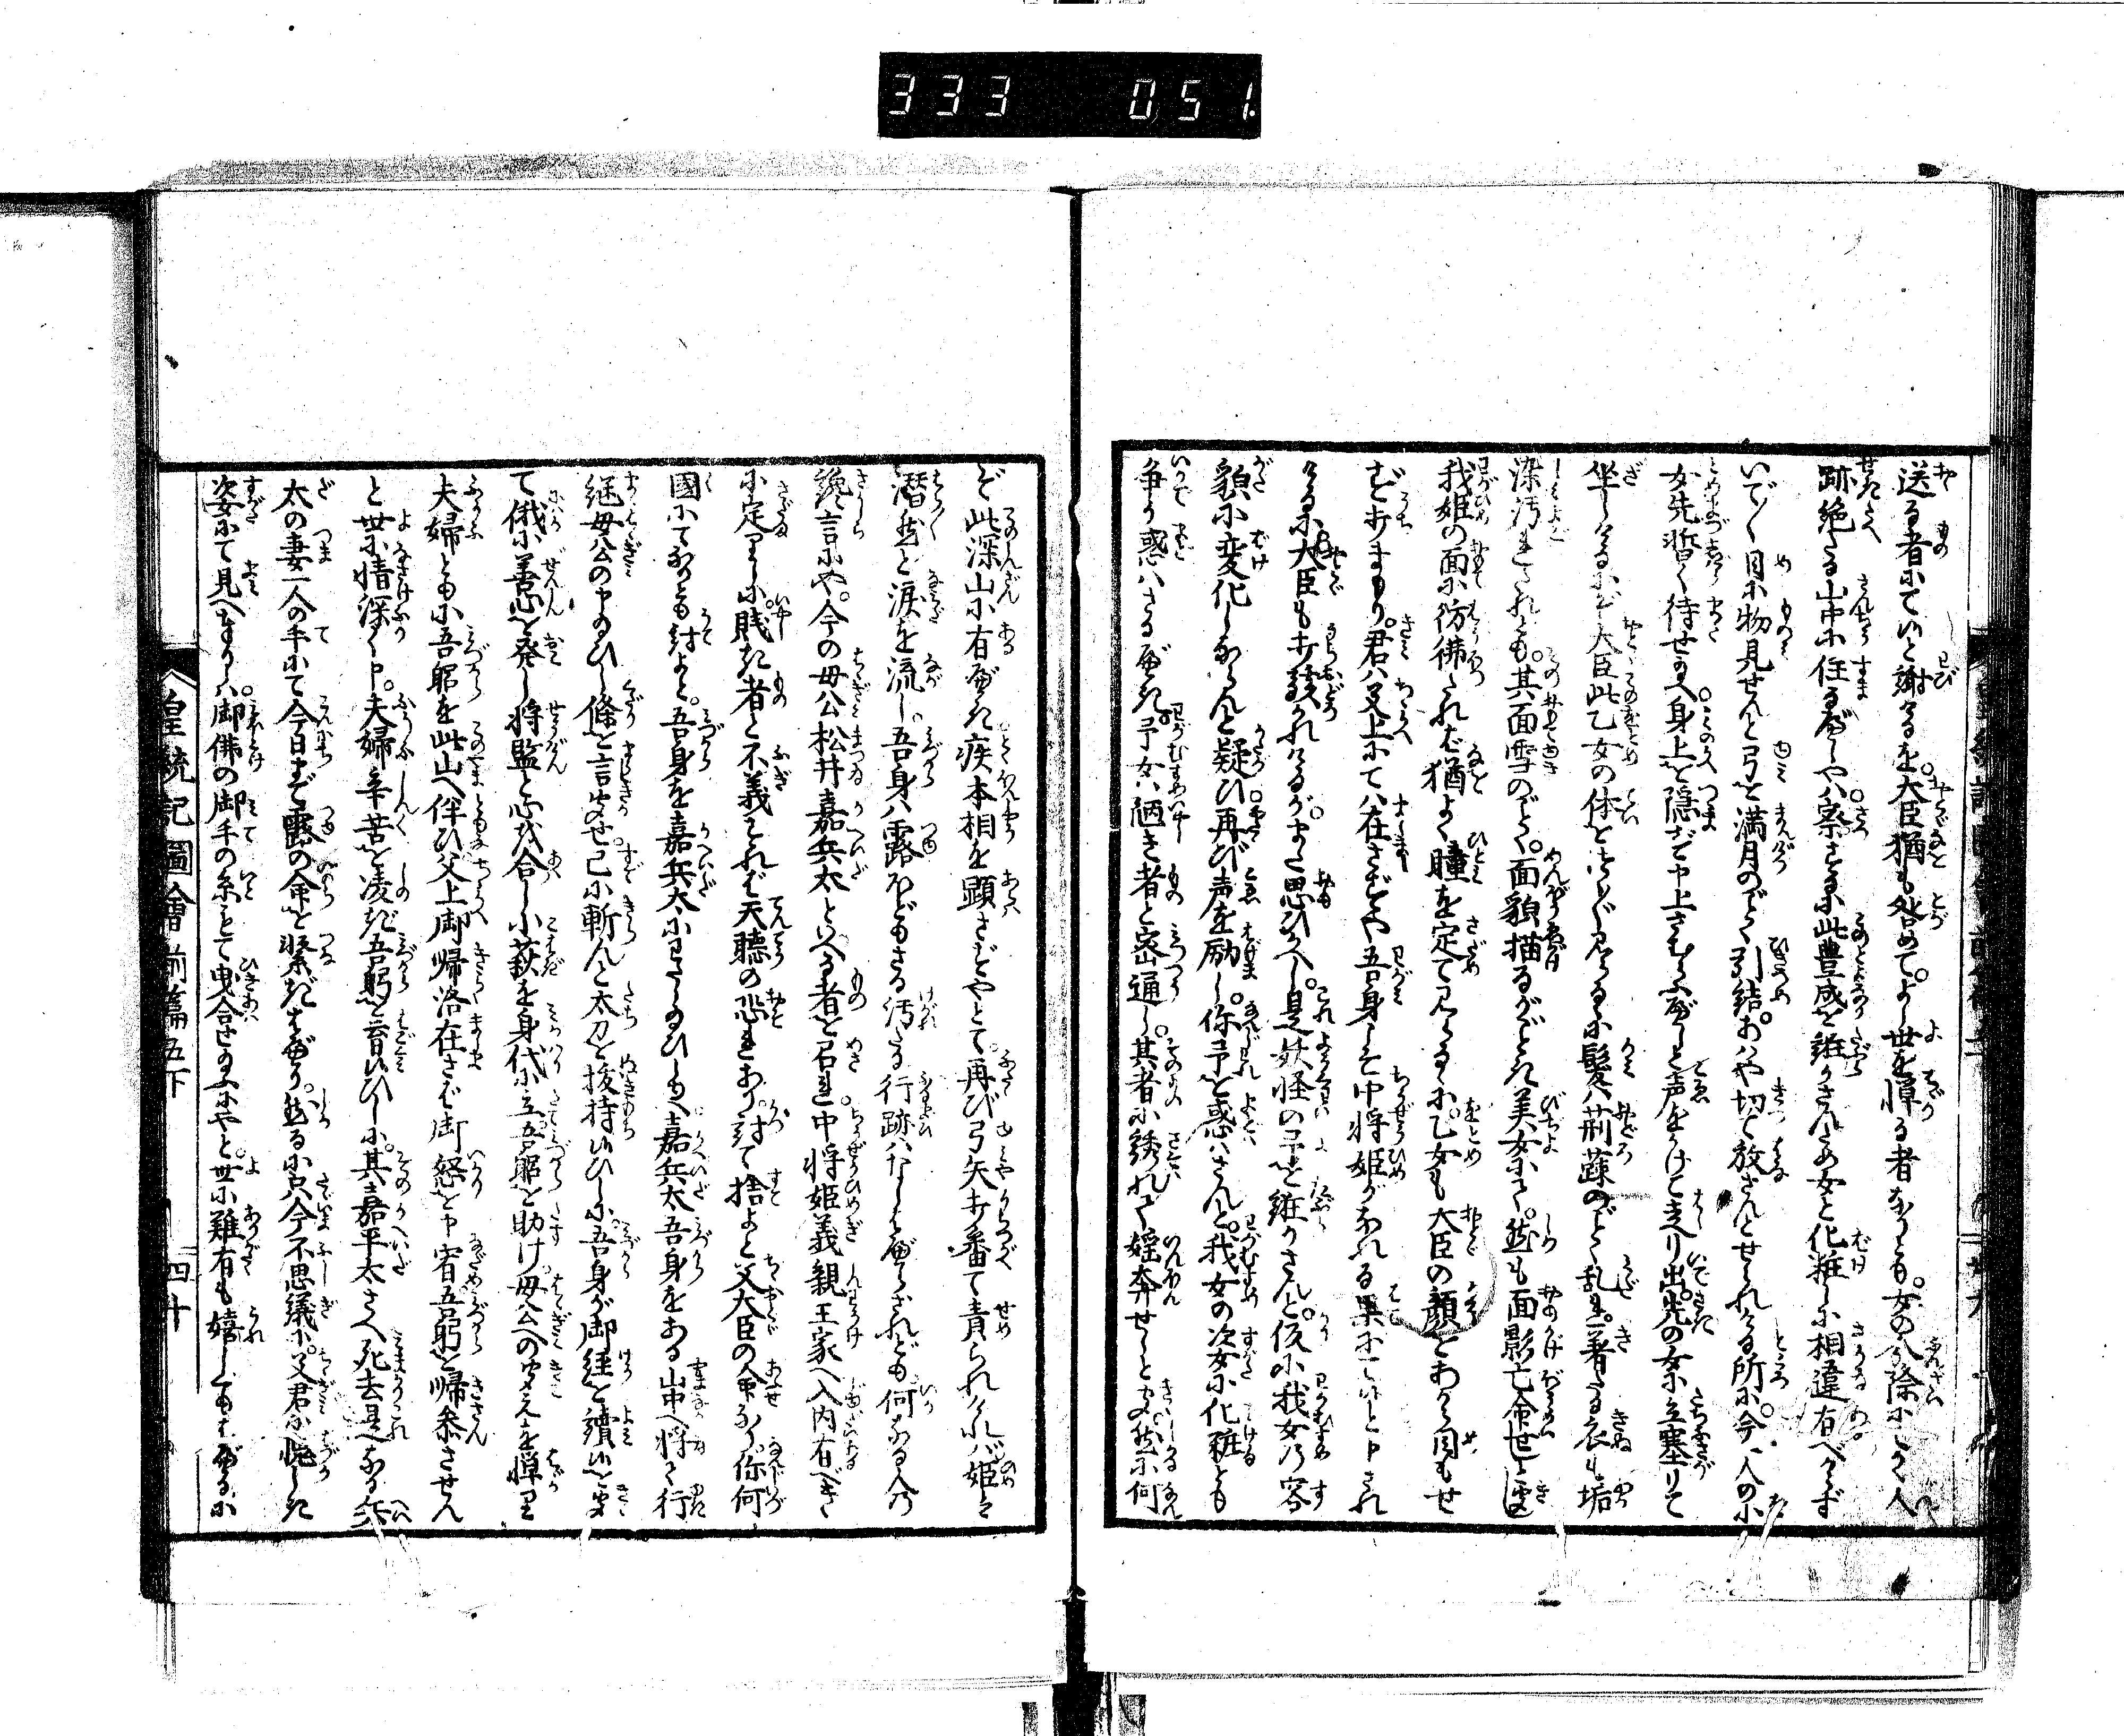 333 051.
送る者にていと謝するを。大臣猶も咎めて。よし世を憚る者なりとも。女の分際にして人
跡絶たる山中に住る事や。察するに此豊成を誑かさんため女と化粧しに相違有べからず
いで〳〵目に物見せんと弓を満月のごとく引結。おはや切て放さんとせられける所に。今一人の小
女先暫く待せ給へ。身上を隠さず申上さむらふべしと声をかけて走り出。先の女に立塞りて
坐しけるにぞ。大臣此乙女の体をつら〳〵見るに髪は荊蕀のごとく乱れ。著たる衣も垢
染汚れたれども。其面雪のごとく。面貌描るがごとき美女にて。然も面影亡命せしと聞
我姫の面に彷彿たれば猶よく瞳を定て見るに。乙女も大臣の顔をあから目もせ
ずうちまもり。君は父上にては在さずや吾身こそ中将姫がなれる果にていと申され
けるに大臣も打驚かれけるが。また思ひかへし。是妖怪の予を誑かさんと。仮に我女の容
貌に変化しならんと疑ひ。再び声を励し。你予を惑はさんと。我女の姿に化粧とも
争か惑はさるべき。予女は陋き者と密通し。其者に誘れて婬奔せしと聞。然に何
ぞ此深山に有べき。疾本相を顕さずやとて。再び弓矢打番て責られければ。姫は
潜然と涙を流し。吾身は露ほどもさる汚たる行跡はなし侍らざれども。何なる人の
讒言にや。今の母公松井嘉兵太といへる者を召れ。中将姫義親王家へ入内有べき
に定りしに。賎き者と不義てれば天聴の恐れあり。討て捨よと父大臣の命なり。你何
國にてなりとも討よと。吾身を嘉兵太にわたし給ひしかば。嘉兵太吾身をある山中へ将て行
継母公の申給ひし條を言聞せ。已に斬んと太刀を抜持いひしに。吾身が御経を讀いを聞
て俄に善心を発し。将監と心を合し。小萩を身代に立。吾躬を助け。母公への聞えを憚り
夫婦ともに吾躬を此山へ伴ひ。父上御帰洛在さば御怒を申宥。吾躬を帰参させん
と世に情深く申。夫婦辛苦を凌ぎ吾躬を育いひしに。其嘉平太さへ死去是なる兵
太の妻一人の手にて今日まで露の命を繋ぎ侍り。然るに只今不思議に。父君に恥しき
姿にて見へまゐらすは。御佛の御手の糸もて曳合せ給ふにやと。世に難有も嬉しくも侍るに
皇統記圖會前篇五下
四十